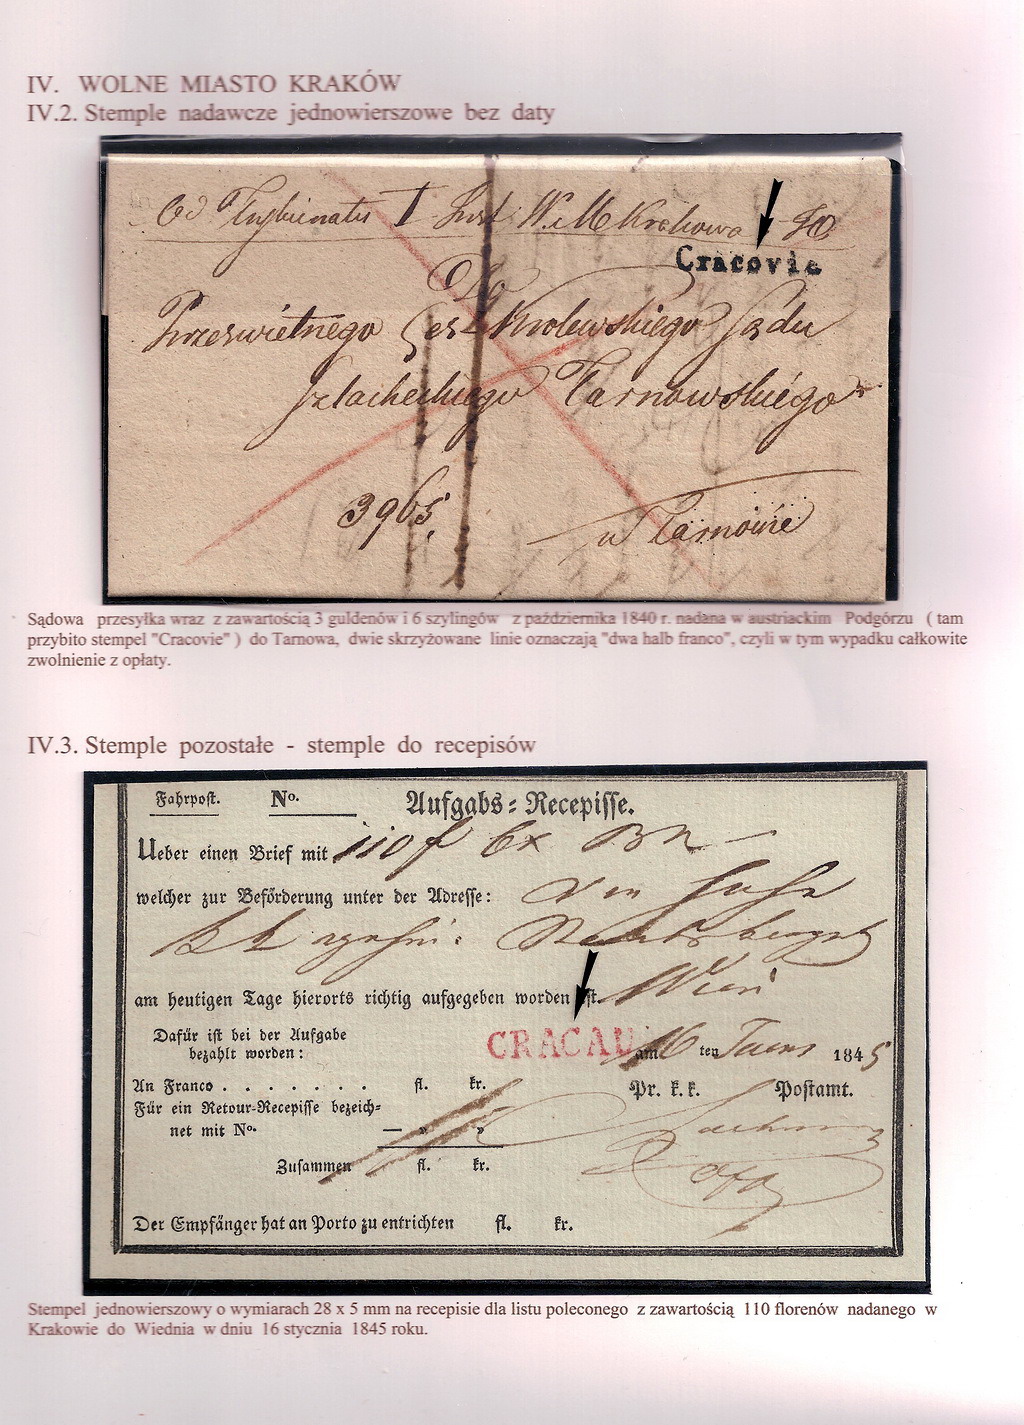 IV. WOLNE MIASTO KRAKÓW
IV.2. Stemple nadawcze jednowierszowe bez daty
Od Trybunału I Inst W. M Krakowa
Cracovie
Do
Przeswietnego Ces Krolewskiego Sądu
Szlacheckiego Tarnowskiego
3965
w Tarnowie
Sądowa przesyłka wraz z zawartością 3 guldenów i 6 szylingów z października 1840 r. nadana w austriackim Podgórzu ( tam
przybito stempel "Cracovie" ) do Tarnowa, dwie skrzyżowane linie oznaczają "dwa halb franco", czyli w tym wypadku całkowite
zwolnienie z opłaty.
IV.3. Stemple pozostałe - stemple do recepisów
Fahrpost. No. Aufgabs=Recepisse.
Ueber einen Brief mit 110 f 6x BN
welcher zur Beförderung unter der Adresse:
am heutigen Tage hierorts richtig aufgegeben worden ist. Wien
Dafür ist bei der Aufgabe
bezahlt worden:
CRACAU am 16 ten 1845
An Franco . . . . . . . fl. kr. Pr. k. k. Postamt.
Für ein Retour-Recepisse bezeich-
net mit No. — » »
Zusammen fl. kr.
Der Empfänger hat an Porto zu entrichten fl. kr.
Stempel jednowierszowy o wymiarach 28 x 5 mm na recepisie dla listu poleconego z zawartością 110 florenów nadanego w
Krakowie do Wiednia w dniu 16 stycznia 1845 roku.